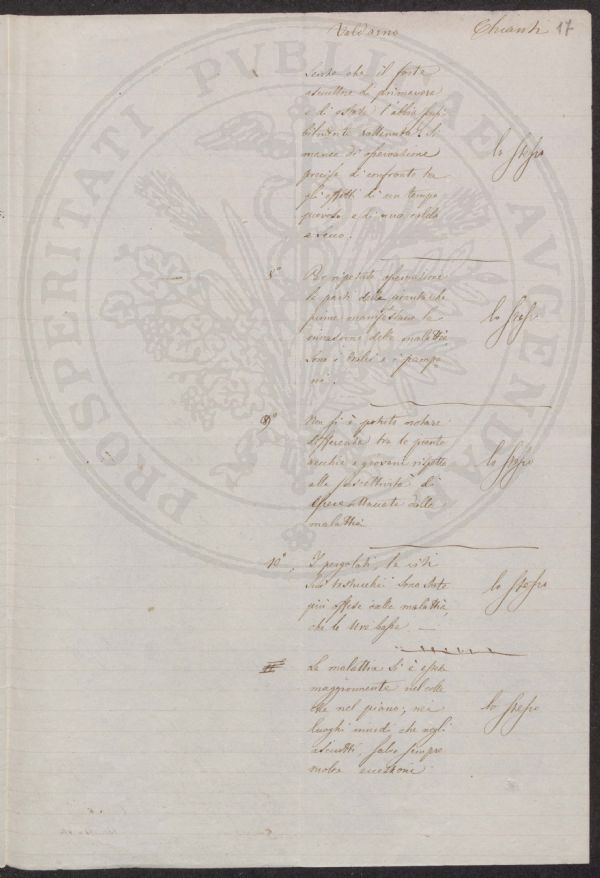 Valdarno Chianti 17
senza che il forte
asciuttore di primavera
e di estate l'abbia
rattenuta. Si
manca di operazione
precisa di confronto tra
gli effetti di un tempo
piovoso e di uno caldo
e secco.
lo stesso
8° Per ripetute operazione
le parti della pianta che
prime manifestano la
invasione della malattia
sono i tralci e i pampa
ni.
lo stesso
9° Non si è potuto notare
differenza tra le piante
vecchie e giovani rispetto
alla suscettività di
essere attaccate dalla
malattia.
lo stesso
10° I pergolati, le viti
sui testucchi sono state
più offese dalla malattia
che le uve basse
lo stesso
11 La malattia si è estesa
maggiormente nel colle
che nel piano; nei
luoghi umidi che negli
asciutti, salvo sempre
molte eccezioni.
lo stesso
PROSPERITATI PVBLICAE AVGENDAE